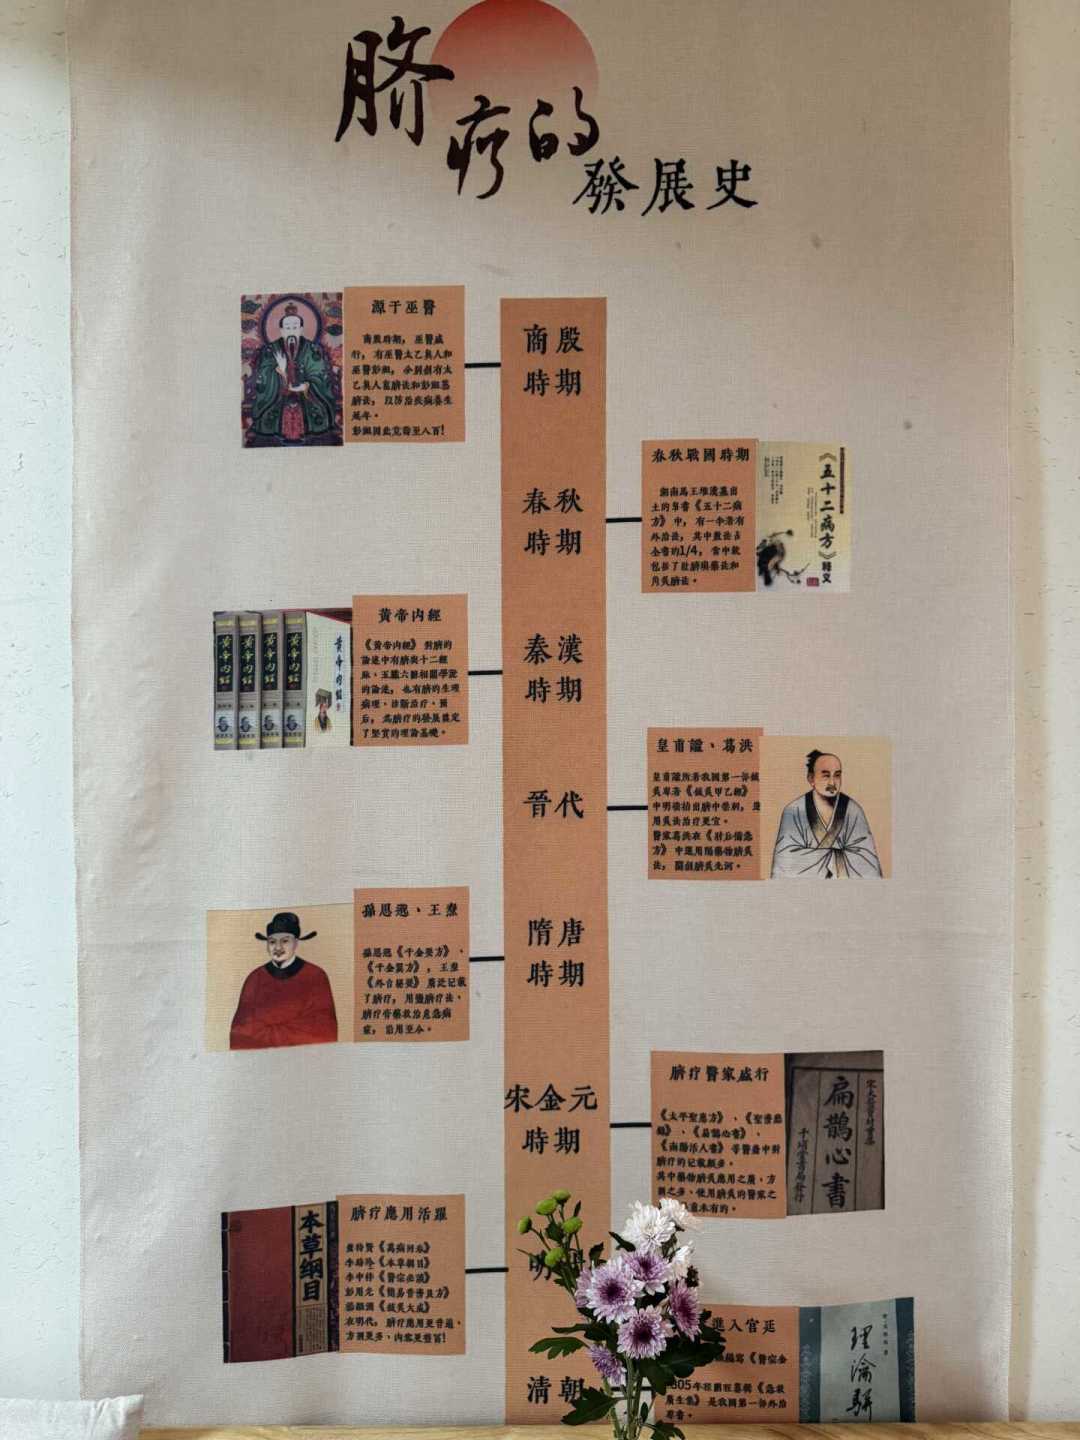 脐
疗的
發展史
源于巫醫
商殷時期，巫醫盛
行，有巫醫太乙真人和
巫醫彭祖，分别創有太
乙真人熏臍法和彭祖蒸
臍法，以防治疾病養生
延年。
彭祖因此竟壽至八百！
商殷
時期
春秋
時期
春秋戰國時期
湖南馬王堆漢墓出
土的帛書《五十二病
方》中，有一半潜有
外治法，其中敷法占
全書的1/4，當中就
包括了肚臍填藥法和
角灸臍法。
《五十二病方》釋义
黄帝内經
《黄帝内經》對臍的
論述中有臍與十二經
脉、五臟六腑相關學説
的論述，也有臍的生理
病理、診斷治疗、預
后，爲臍疗的發展奠定
了堅實的理論基礎。
黄帝内經
黄帝内經
黄帝内經
黄帝内經
黄帝内經
秦漢
時期
晉代
皇甫謐、葛洪
皇甫謐所著我國第一部鍼
灸專著《鍼灸甲乙經》
中明確指出臍中禁刺，
用灸法治疗更宜。
醫家葛洪在《肘后備急
方》中運用隔藥物臍灸
法，開創臍灸先河。
孫思邈、王燾
孫思邈《千金要方》、
《千金翼方》，王燾
《外台秘要》廣泛记載
了臍疗，用鹽臍疗法、
臍疗膏藥救治危急病
症，沿用至今。
隋唐
時期
宋金元
時期
臍疗醫家盛行
《太平聖惠方》、《聖濟總
録》、《扁鵲心書》、
《南陽活人書》等醫書中對
臍疗的记載頗多。
其中藥物臍灸應用之廣，方
劑之多，使用臍灸的醫家之
未有的。
扁鵲心書
千頃堂書局發行
臍疗應用活躍
龔特賢《萬病回春》
李時珍《本草綱目》
李中梓《醫宗必讀》
彭用光《簡易普濟良方》
楊繼洲《鍼灸大成》
在明代，臍疗應用更普遍、
方劑更多、内容更豐富！
本草纲目
明
清朝
進入宫廷
編寫《醫宗金
805年程鵬程纂輯《急救
廣生集》是我國第一部外治
專書。
理瀹駢